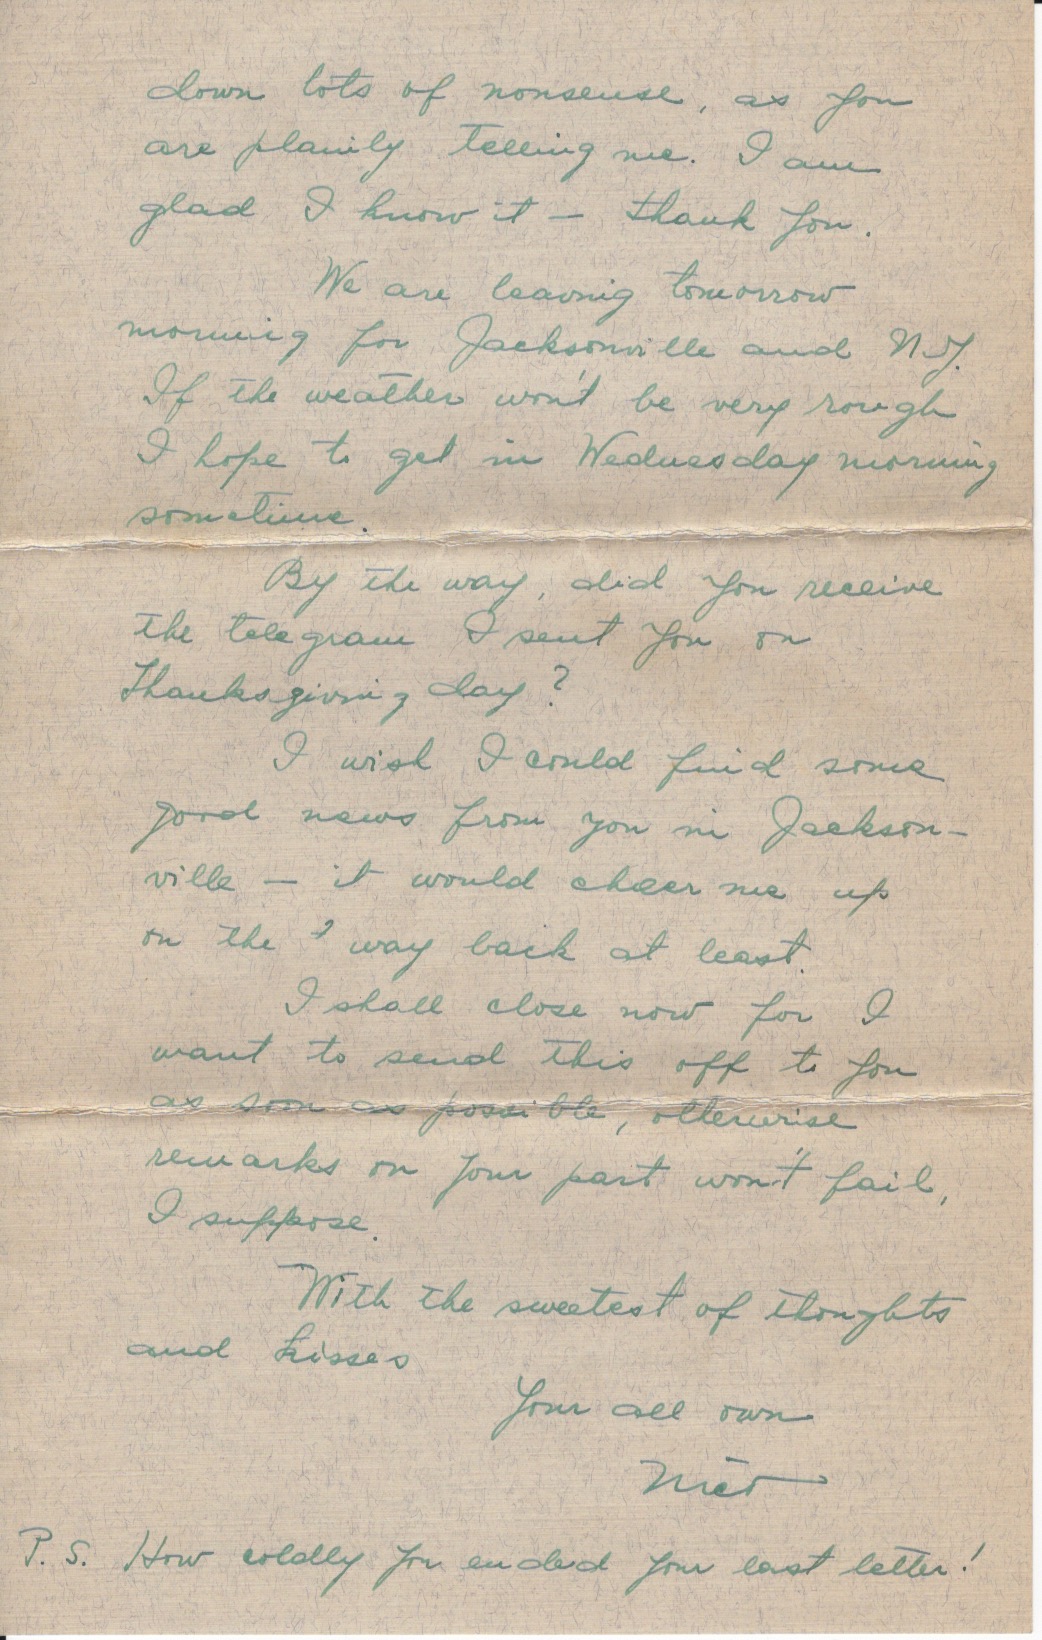 down lots of nonsense, as you
are plainly telling me. I am
glad I know it — thank you.
We are leaving tomorrow
morning for Jacksonville and N.Y.
If the weather won't be very rough
I hope to get in Wednesday morning
sometime.
By the way, did you receive
the telegram I sent you on
Thanksgiving day?
I wish I could find some
good news from you in Jackson-
ville — it would cheer me up
on the way back at least.
I shall close now for I
want to send this off to you
as soon as possible, otherwise
remarks on your part won't fail,
I suppose.
With the sweetest of thoughts
and kisses
Your all own
P.S. How coldly you ended your last letter!